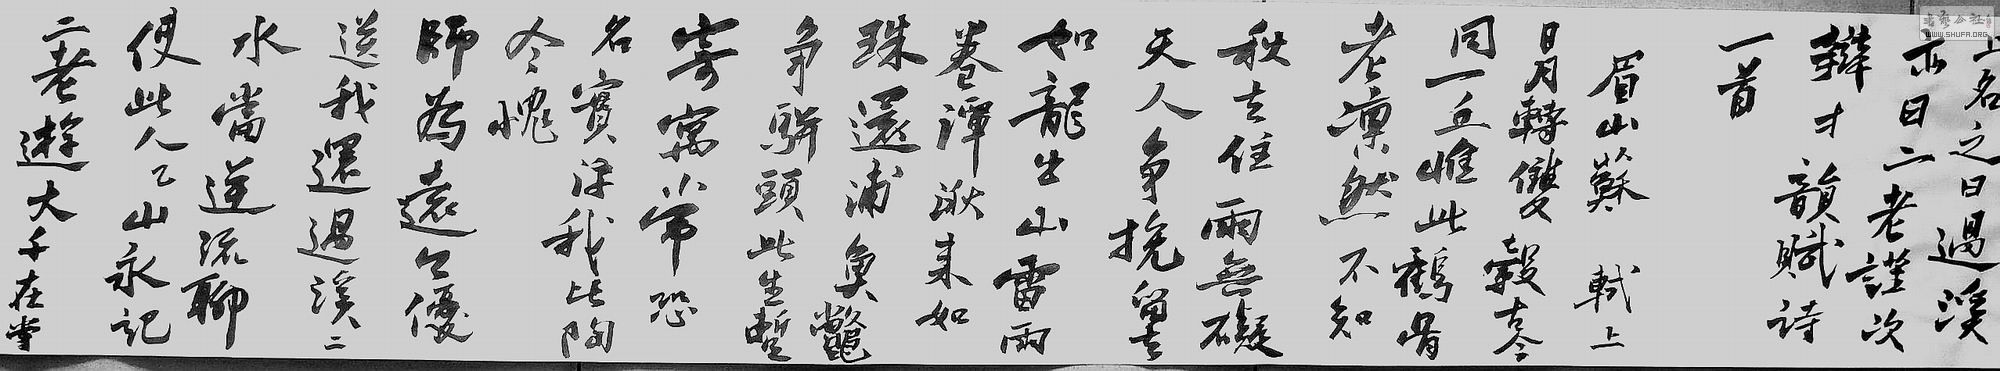 上名之曰過溪
亦曰二老謹次
辯才韻賦詩
一首
眉山蘇 軾上
日月轉雙轂古今
同一丘惟此鶴骨
老凜然不知
秋去住兩無礙
天人争挽留去
如龍出山雷雨
卷潭湫来如
珠還浦魚鼈
争駢頭此生暫
寄寓常恐
名實浮我比陶
令愧
師為遠公優
送我還過溪〻
水當逆流聊
使此人山永記
二老遊大千在掌
書藝公社
WWW.SHUFA.ORG